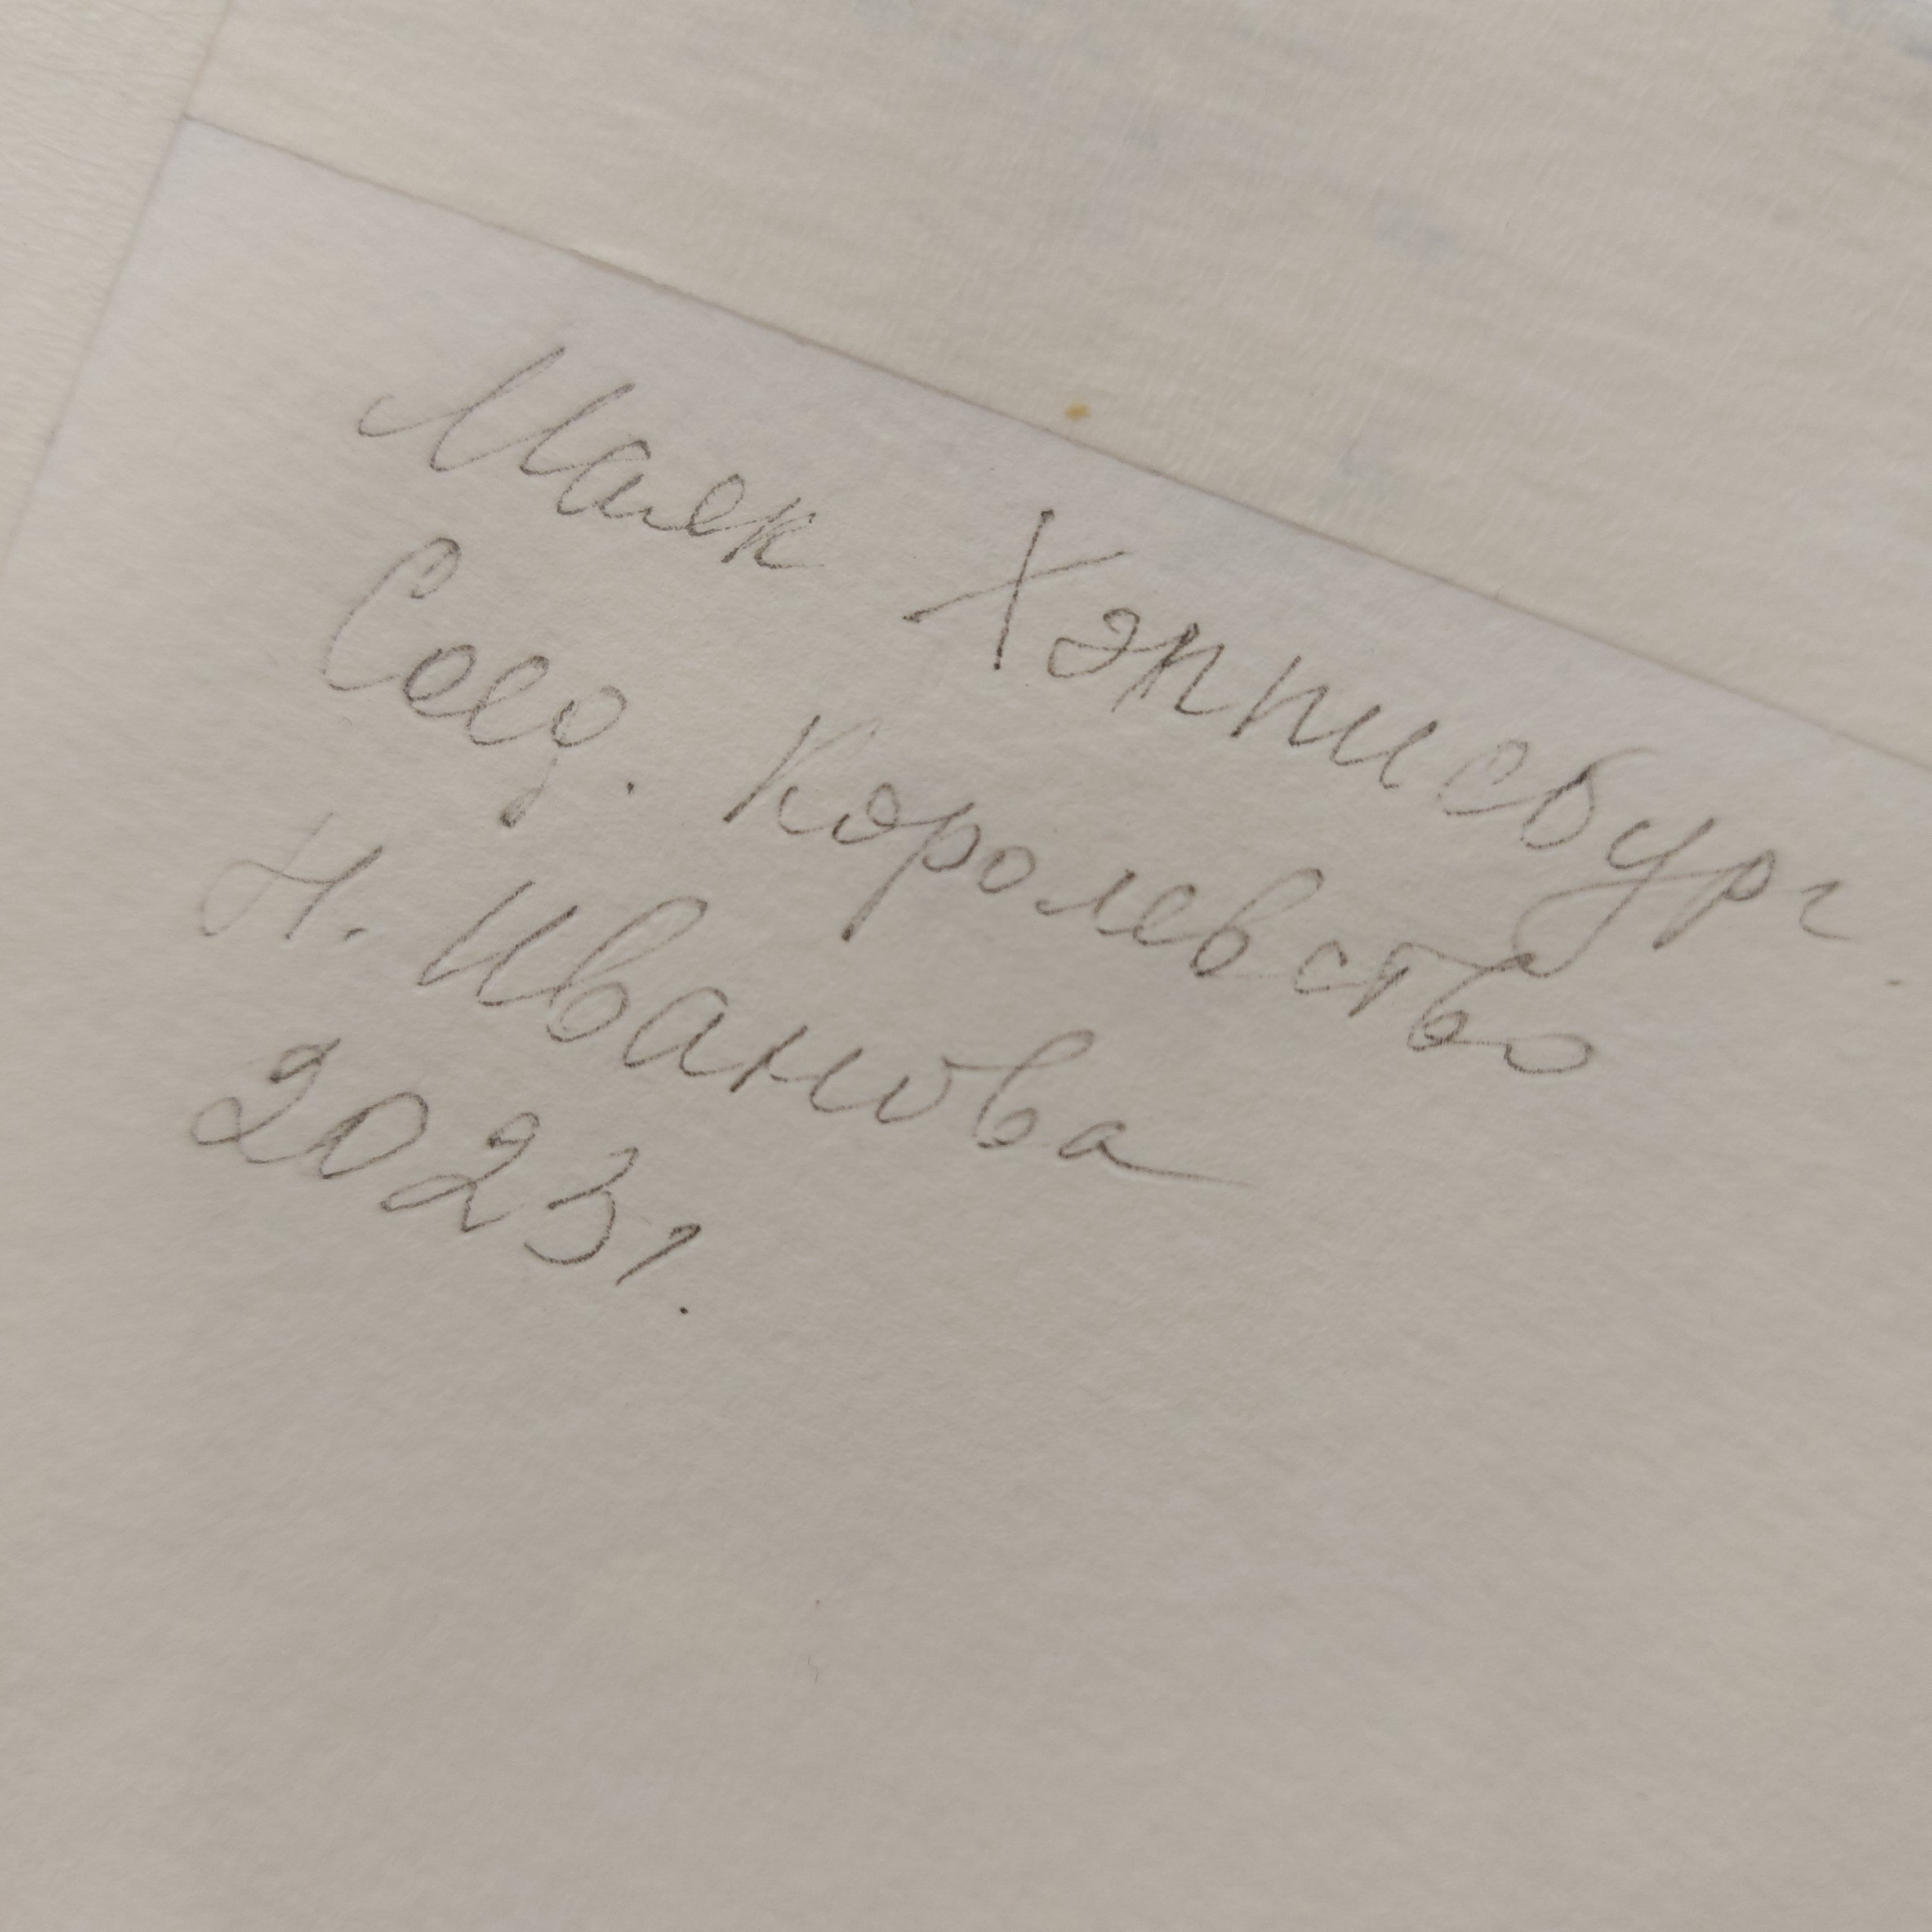 Маяк Хэписбург
Соед. Королевство
Н. Иванова
2023г.